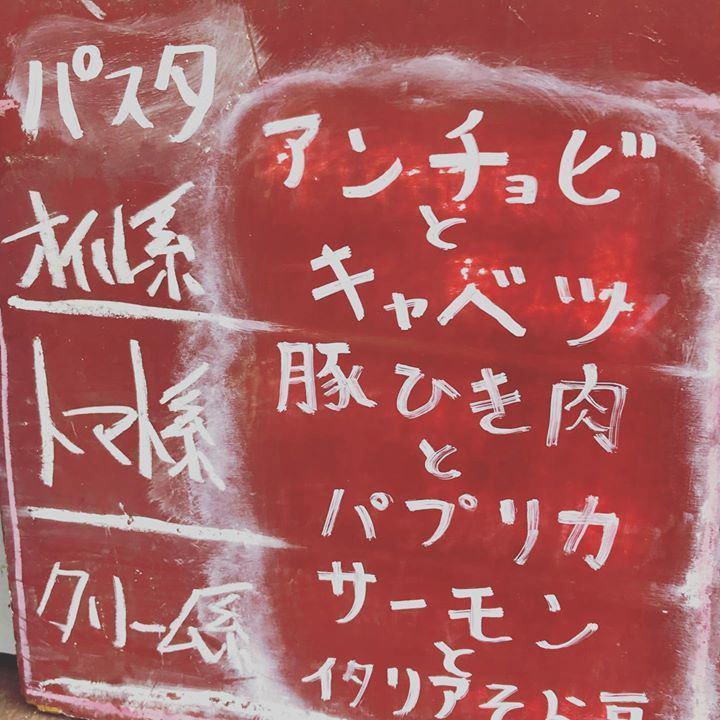 パスタ
オイル系
アンチョビ
と
キャベツ
トマト系
豚ひき肉
と
パプリカ
クリーム系
サーモン
と
イタリアそら豆